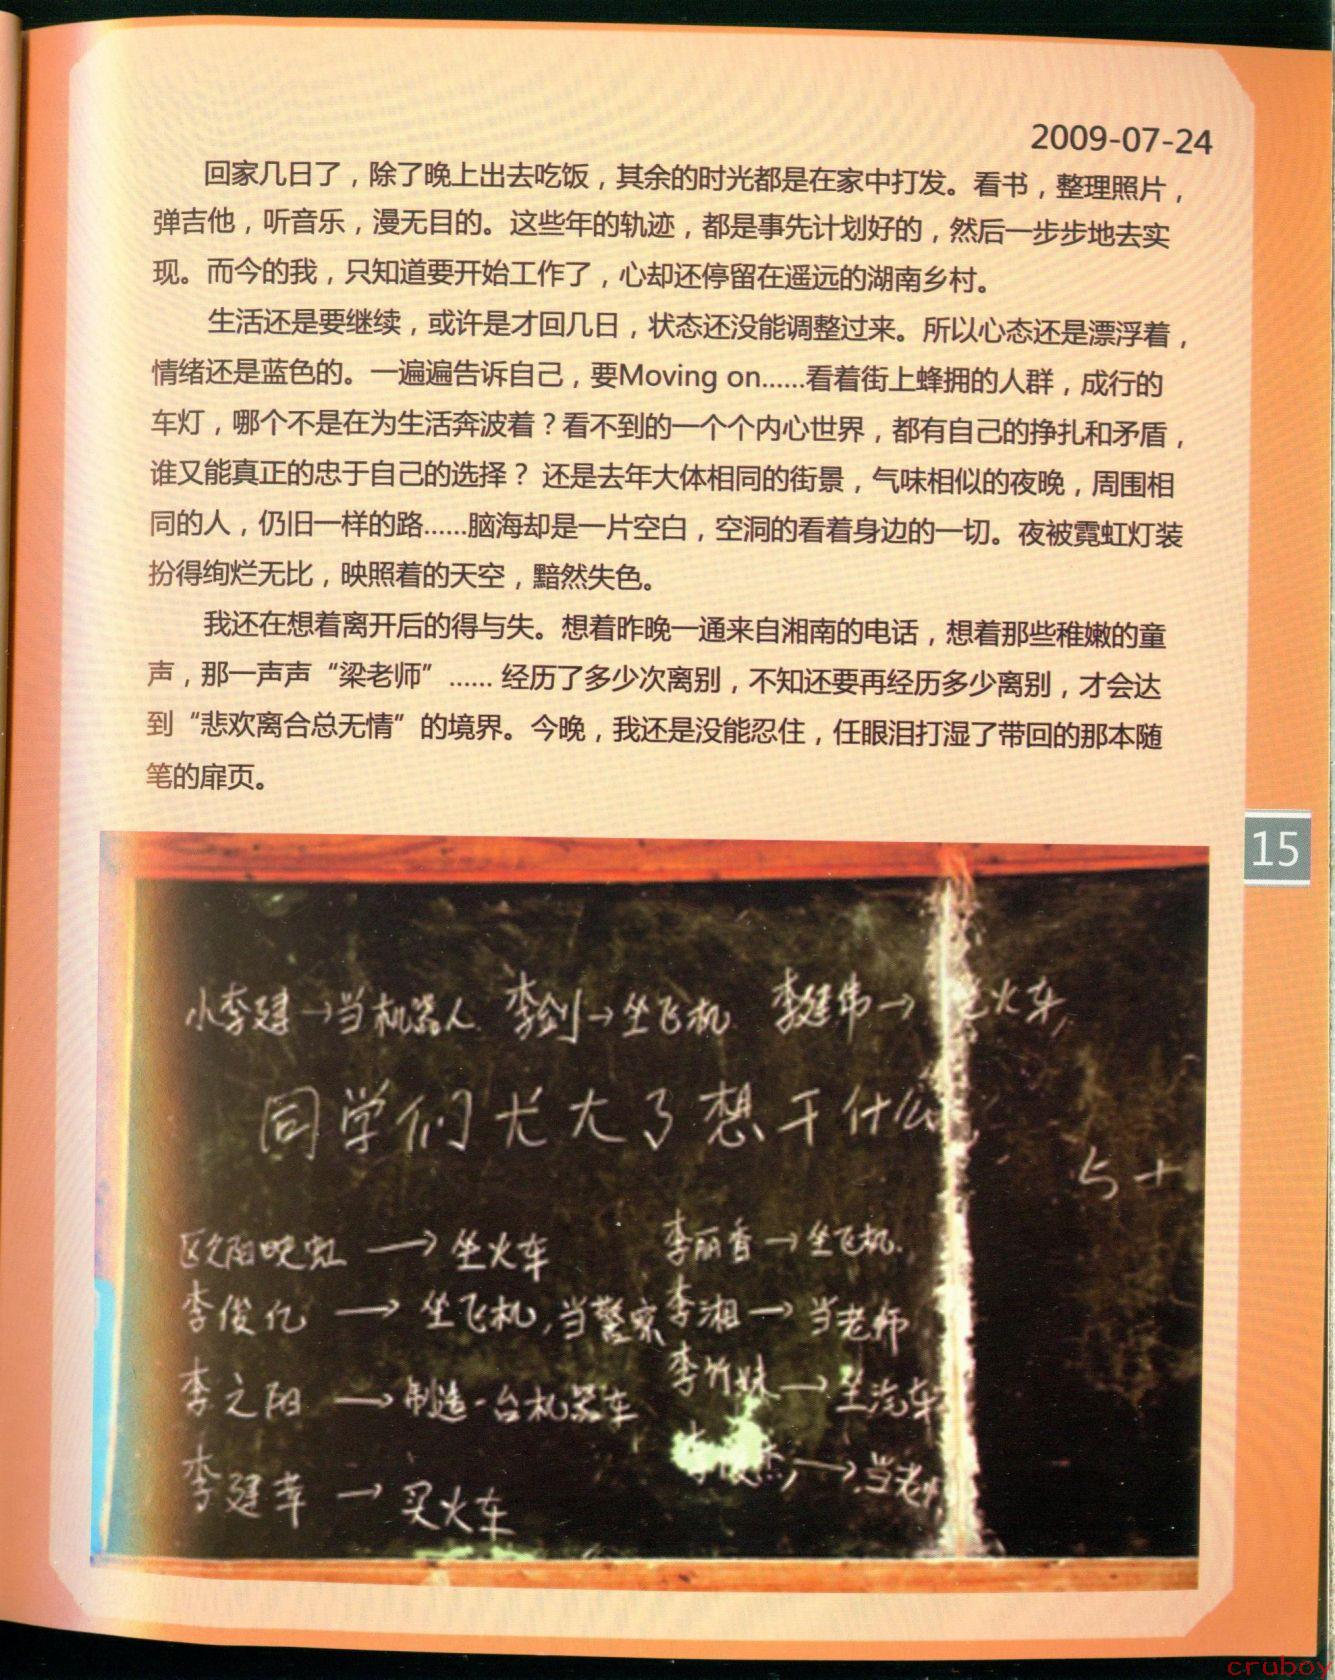 2009-07-24
回家几日了，除了晚上出去吃饭，其余的时光都是在家中打发。看书，整理照片，
弹吉他，听音乐，漫无目的。这些年的轨迹，都是事先计划好的，然后一步步地去实
现。而今的我，只知道要开始工作了，心却还停留在遥远的湖南乡村。
生活还是要继续，或许是才回几日，状态还没能调整过来。所以心态还是漂浮着，
情绪还是蓝色的。一遍遍告诉自己，要Moving on......看着街上蜂拥的人群，成行的
车灯，哪个不是在为生活奔波着？看不到的一个个内心世界，都有自己的挣扎和矛盾，
谁又能真正的忠于自己的选择？ 还是去年大体相同的街景，气味相似的夜晚，周围相
同的人，仍旧一样的路......脑海却是一片空白，空洞的看着身边的一切。夜被霓虹灯装
扮得绚烂无比，映照着的天空，黯然失色。
我还在想着离开后的得与失。想着昨晚一通来自湘南的电话，想着那些稚嫩的童
声，那一声声“梁老师”...... 经历了多少次离别，不知还要再经历多少离别，才会达
到“悲欢离合总无情”的境界。今晚，我还是没能忍住，任眼泪打湿了带回的那本随
笔的扉页。
15
小李建→当机器人 李剑→坐飞机 李建伟→ 火车
同学们 大了想干什么
5+
欧阳晚虹→坐火车 李丽香→坐飞机
李俊亿→坐飞机,当警察 李湘→当老师
李之阳→制造一台机器车 李竹妹→坐汽车
李建幸→买火车 杰→当老师
cruboy